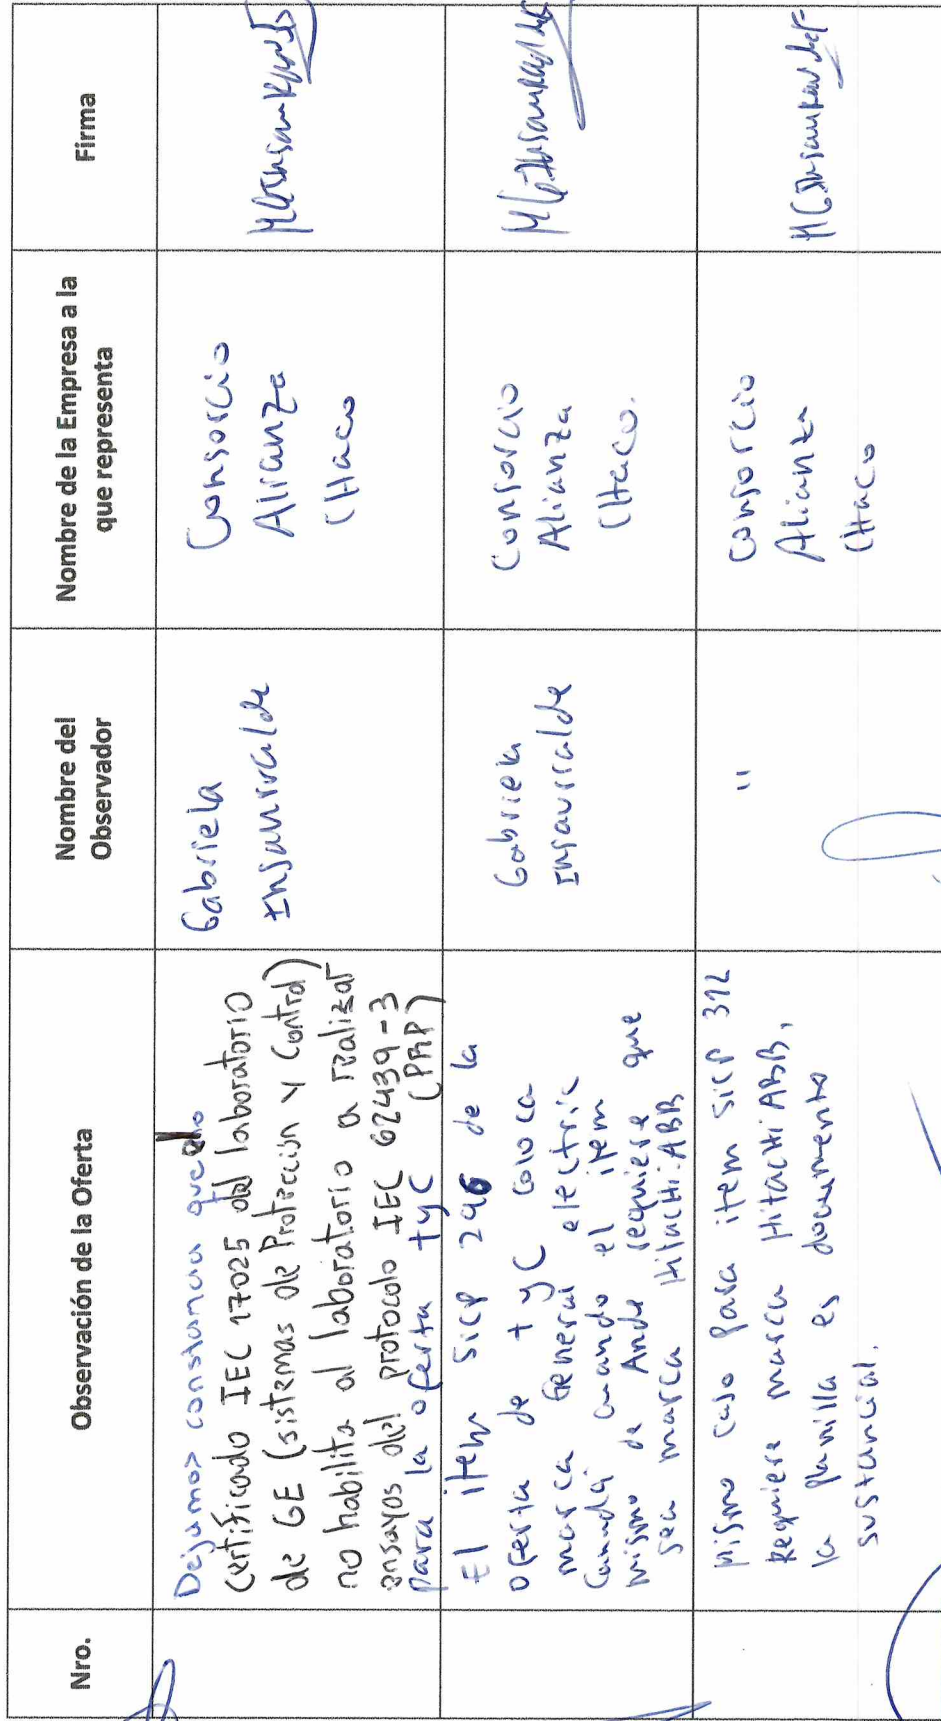 Nro.
Observación de la Oferta
Nombre del
Observador
Nombre de la Empresa a la
que representa
Firma
Dejamos constancia que el
certificado IEC 17025 del laboratorio
de GE (sistemas de Protección y Control)
no habilita al laboratorio a realizar
ensayos del protocolo IEC 62439-3
para la oferta tyC (PRP)
Gabriela
Insaurralde
Consorcio
Alianza
CHaco
El item sicp 296 de la
oferta de t y C coloca
marca General electric
Canadá cuando el item
mismo de Ande requiere que
sea marca Hitachi ABB
Gabriela
Insaurralde
Consorcio
Alianza
CHaco.
mismo caso para item sicp 312
Requiere marca HitacHi ABB,
la planilla es documento
sustancial.
"
Consorcio
Alianza
CHaco